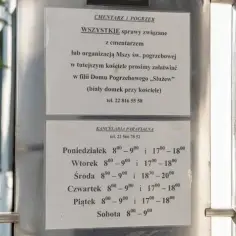 CMENTARZ I POGRZEB
WSZYSTKIE sprawy związane
z cmentarzem
lub organizacją Mszy św. pogrzebowej
w tutejszym kościele prosimy załatwiać
w filii Domu Pogrzebowego „Służew"
(biały domek przy kościele)
tel. 22 816 55 50
KANCELARIA PARAFIALNA
Poniedziałek 8⁰⁰ – 9⁰⁰ i 17⁰⁰ – 18⁰⁰
Wtorek 8⁰⁰ – 9⁰⁰ i 17⁰⁰ – 18⁰⁰
Środa 8⁰⁰ – 9⁰⁰ i 18³⁰ – 20⁰⁰
Czwartek 8⁰⁰ – 9⁰⁰ i 17⁰⁰ – 18⁰⁰
Piątek 8⁰⁰ – 9⁰⁰ i 17⁰⁰ – 18⁰⁰
Sobota 8⁰⁰ – 9⁰⁰